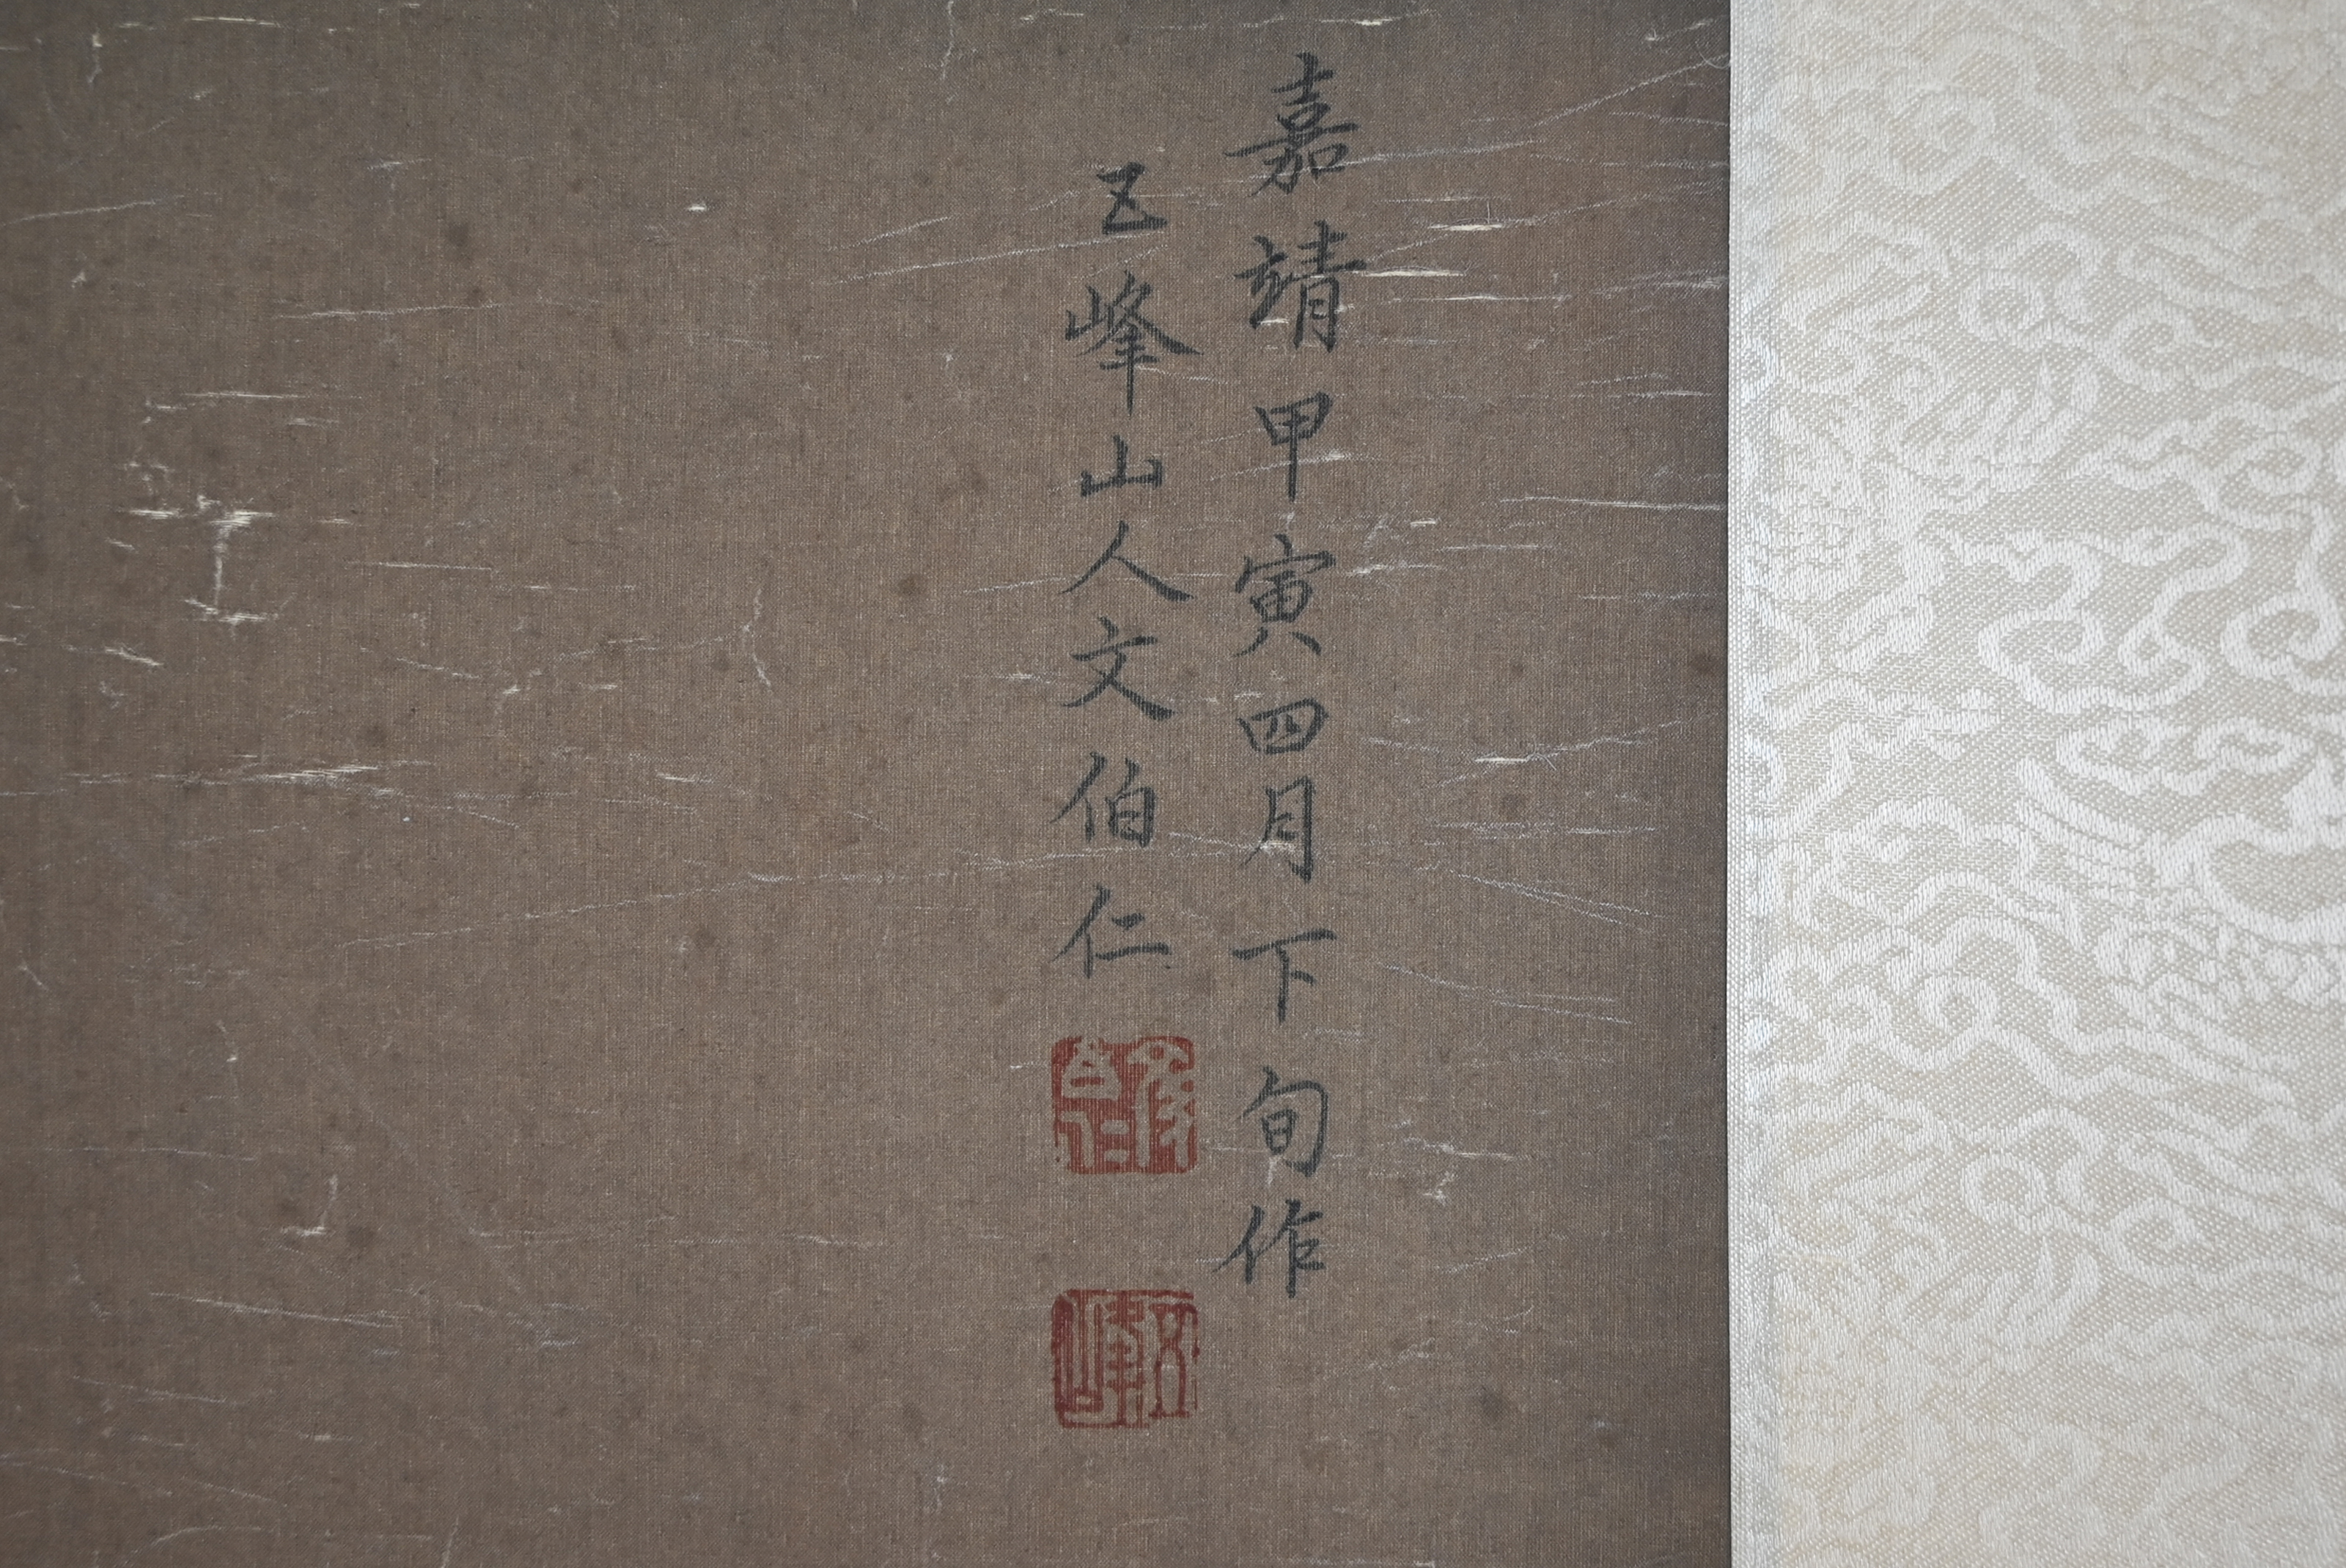 嘉靖甲寅四月下旬作
五峰山人文伯仁